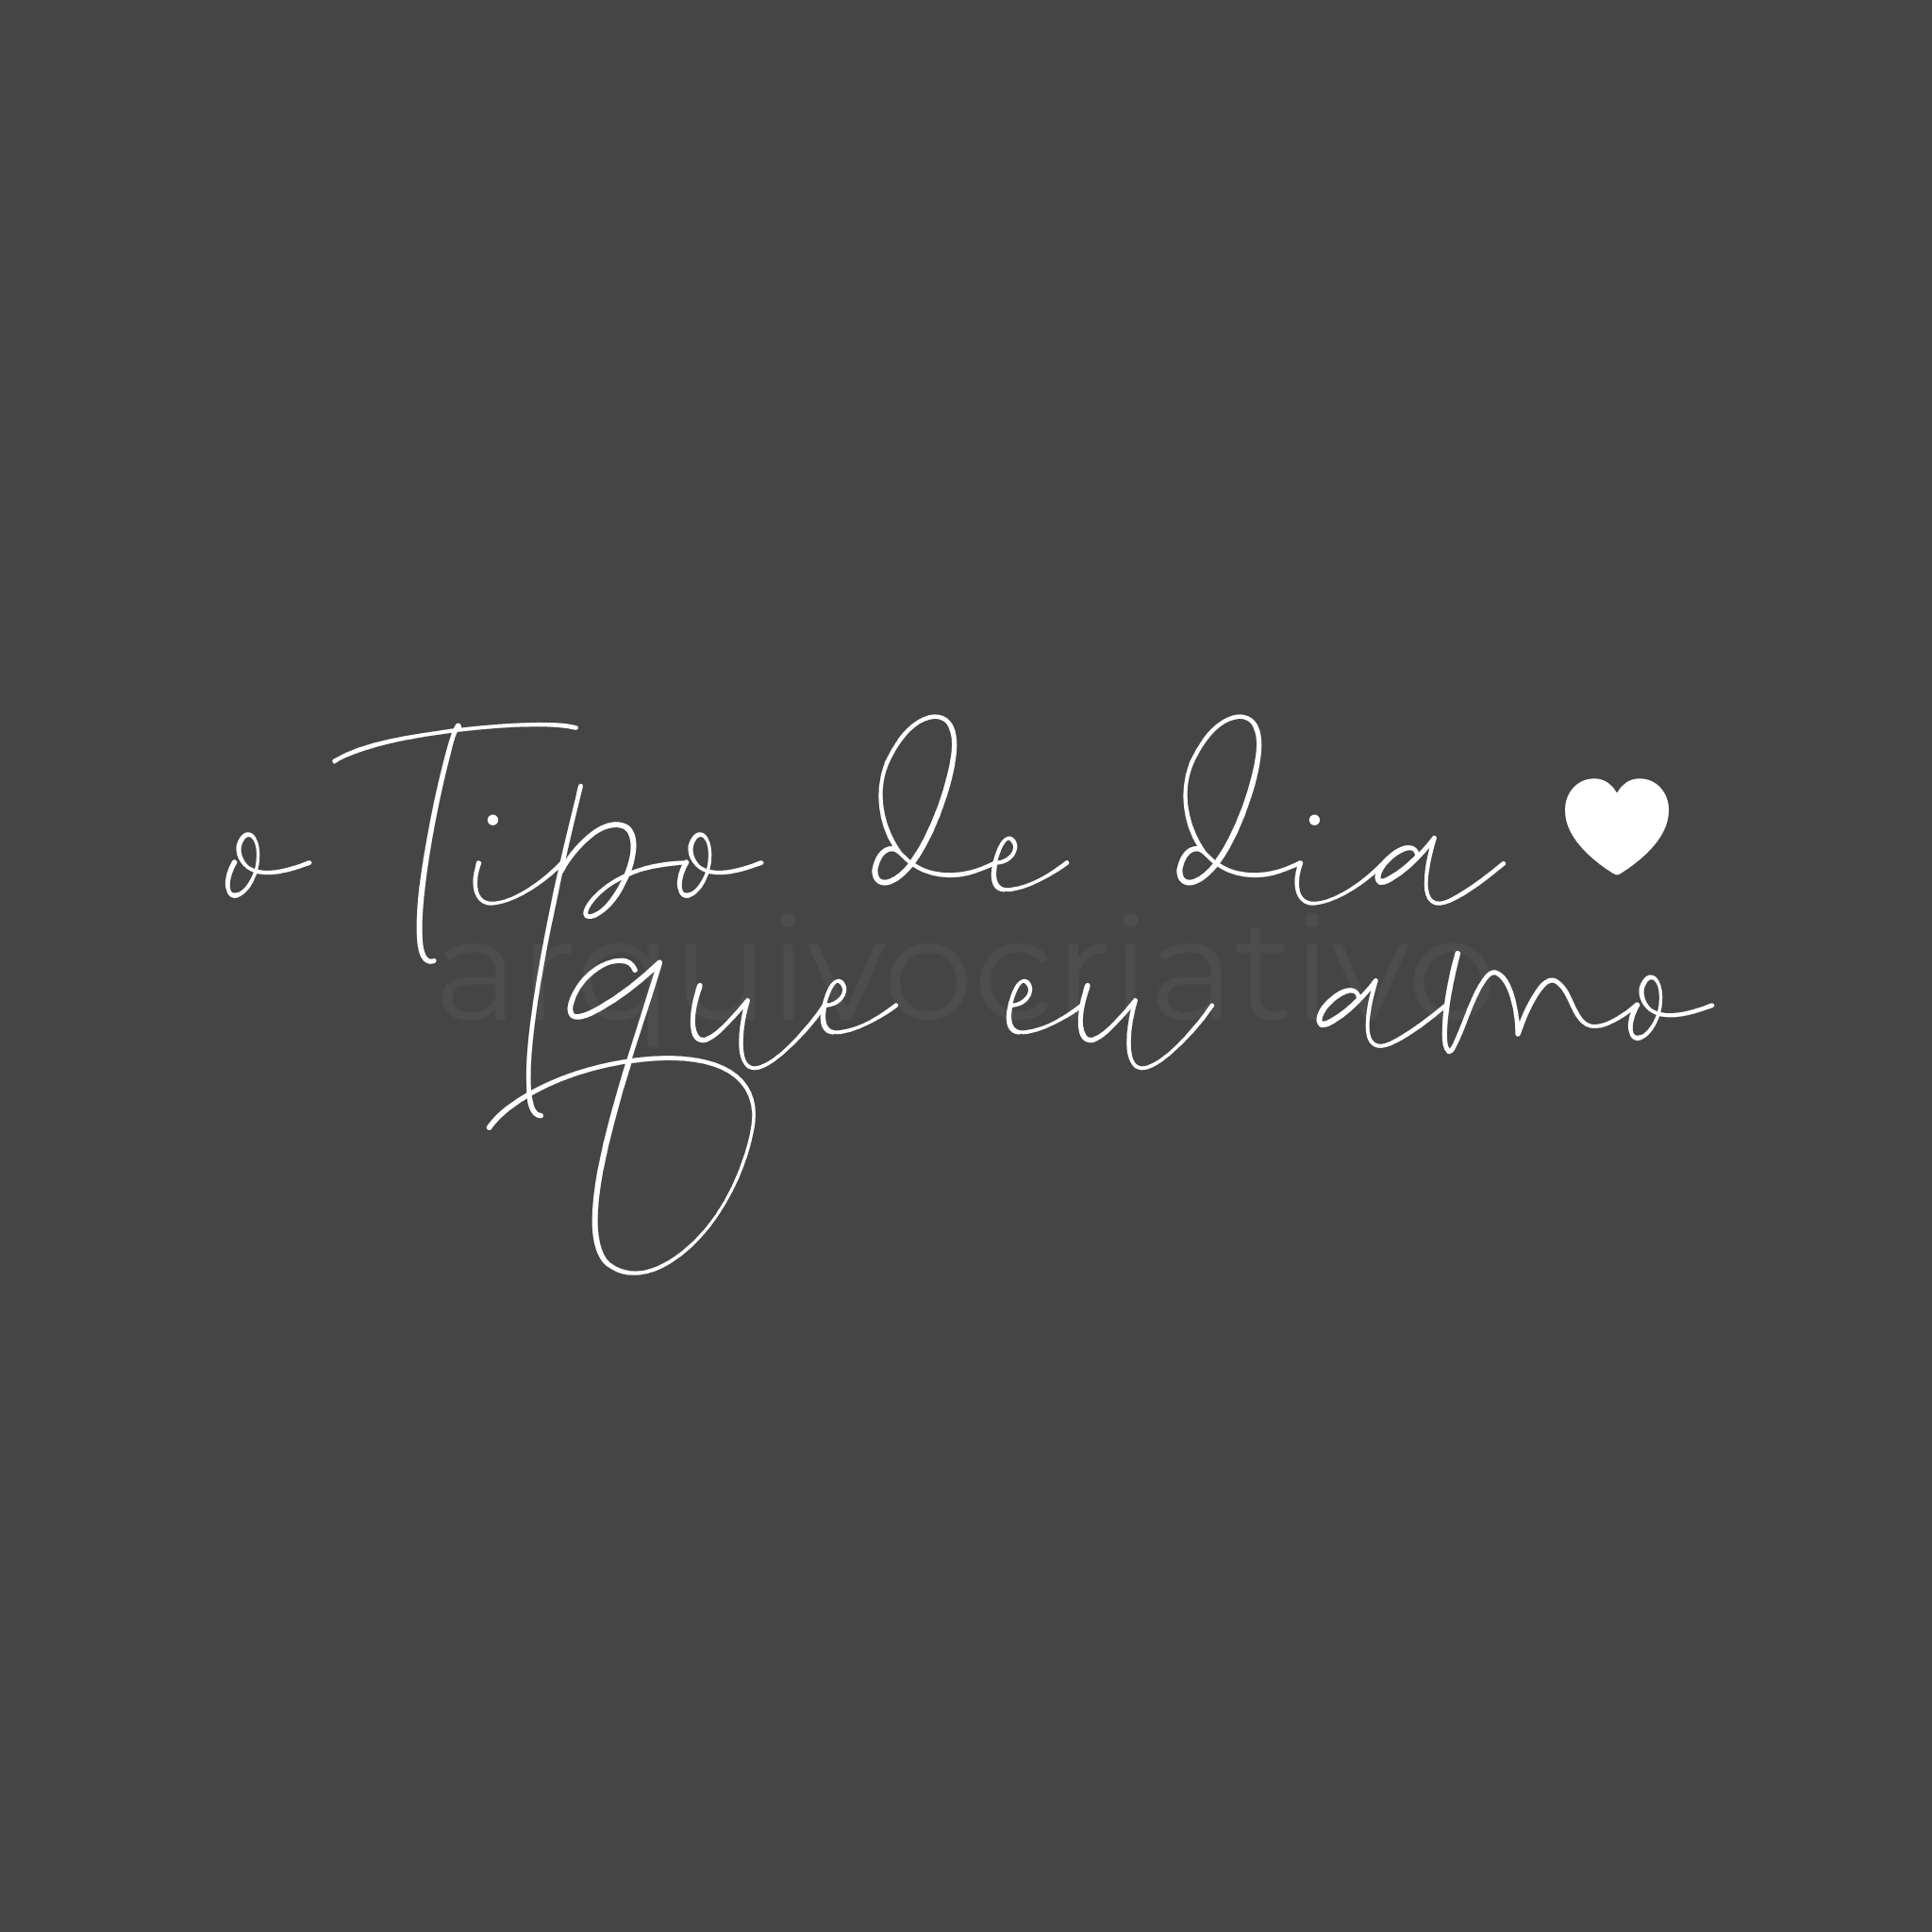 o Tipo de dia 🤍
arquivocriativo
que eu amo